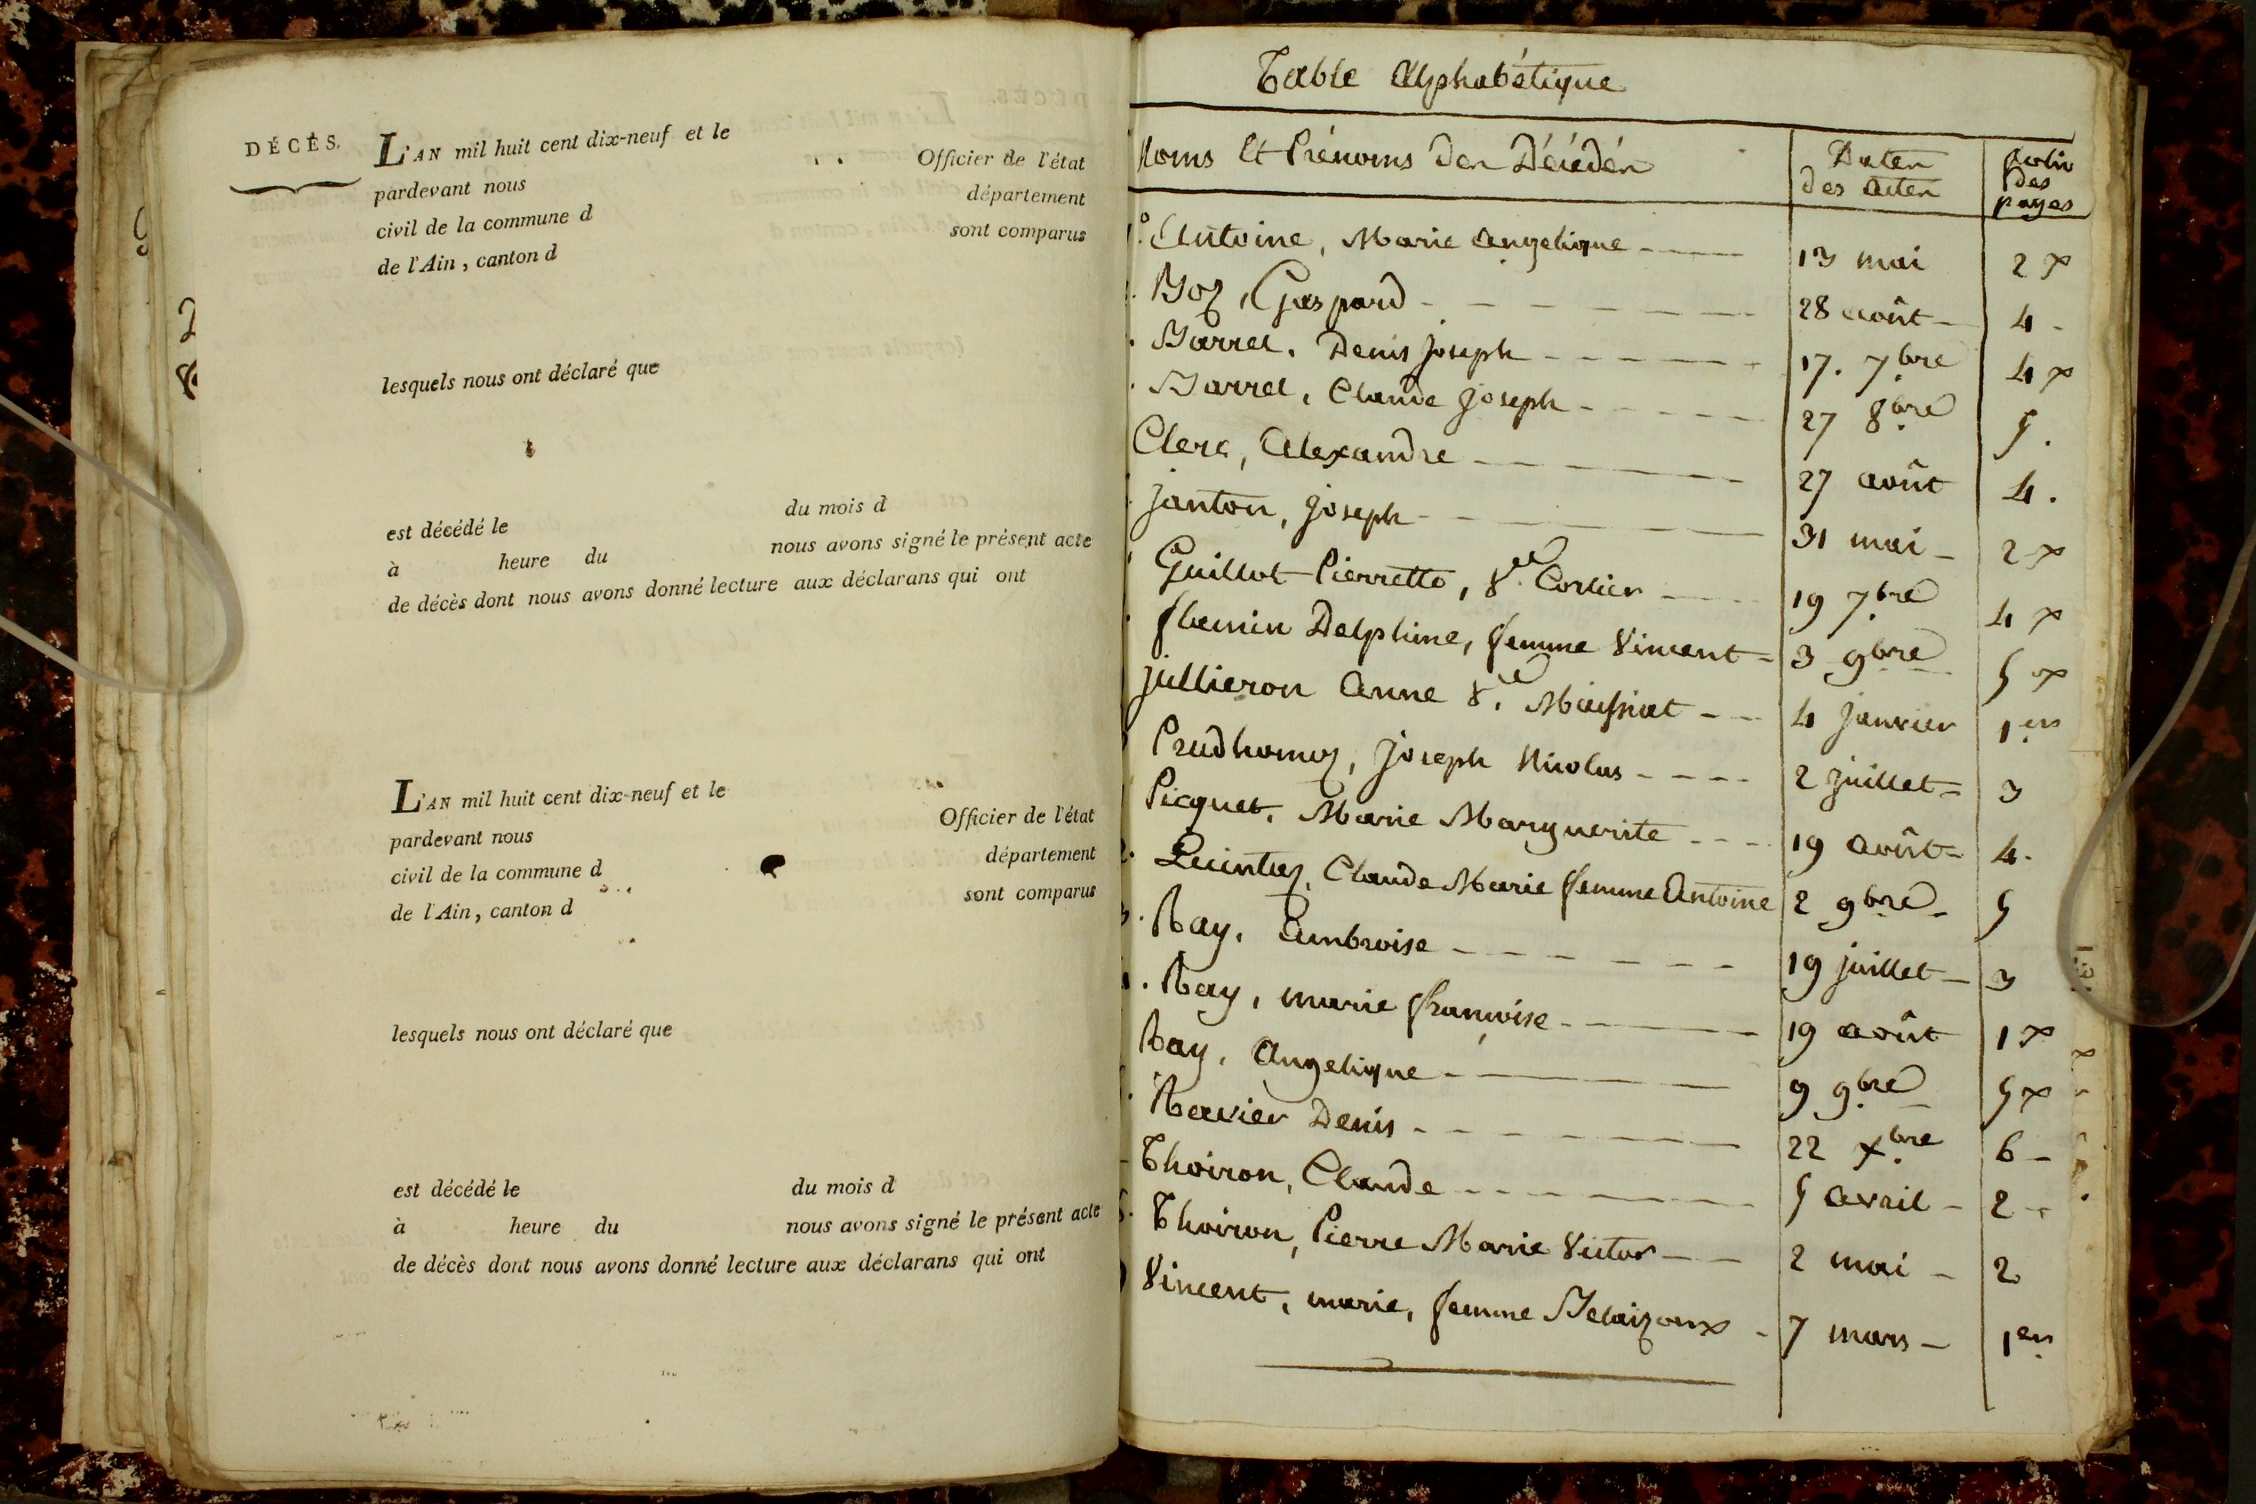 DÉCÈS.
L'AN mil huit cent dix-neuf et le
pardevant nous Officier de l'état
civil de la commune d département
de l'Ain, canton d sont comparus
lesquels nous ont déclaré que
est décédé le du mois d
à heure du nous avons signé le présent acte
de décès dont nous avons donné lecture aux déclarans qui ont
L'AN mil huit cent dix-neuf et le
pardevant nous Officier de l'état
civil de la commune d département
de l'Ain, canton d sont comparus
lesquels nous ont déclaré que
est décédé le du mois d
à heure du nous avons signé le présent acte
de décès dont nous avons donné lecture aux déclarans qui ont
Table Alphabétique
Noms Et Prénoms des Décédés Dates des actes folio des pages
Antoine, Marie Angelique 13 mai 2
Boz, Gaspard 28 août 4
Barret, Denis joseph 17. 7bre 4
Barret, Claude joseph 27 8bre 5.
Clerc, Alexandre 27 août 4.
janton, joseph 31 mai 2
Guillot Pierrette, Ve Cortier 19 7bre 4
femme Vincent 3 9bre 5
jullieron Anne Ve. Maissiat 4 janvier 1er
Prudhomez, joseph Nicolas 2 juillet 3
Picquet, Marie Marguerite 19 août 4.
Quintaz, Claude Marie femme Antoine 2 9bre 5
Ray, Ambroise 19 juillet 3
Ray, marie françoise 19 août 1
Ray, Angelique 9 9bre 5
Ravier Denis 22 xbre 6
Thoiron, Claude 5 avril 2
Thoiron, Pierre Marie Victor 2 mai 2
Vincent, marie, femme Belaizoux 7 mars 1er